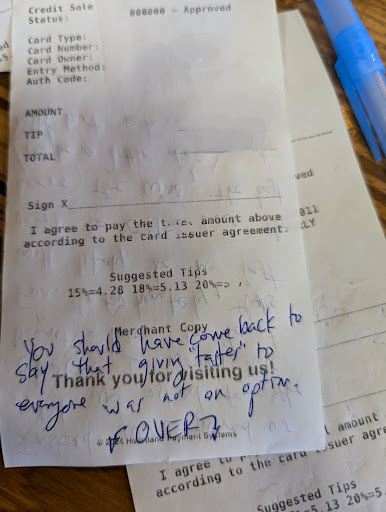 Credit Sale
Status: 000000 - Approved
Card Type:
Card Number:
Card Owner:
Entry Method:
Auth Code:
AMOUNT
TIP
TOTAL
Sign X
I agree to pay the total amount above
according to the card issuer agreement.
Suggested Tips
15%=4.28 18%=5.13 20%=5
Merchant Copy
You should have come back to
say that giving "tastes" to
Thank you for visiting us!
everyone was not an option.
OVER
Payment Systems
011
LY
amount
I agree to
according to the card issuer agre
Suggested Tips
=5.13 20%=5.